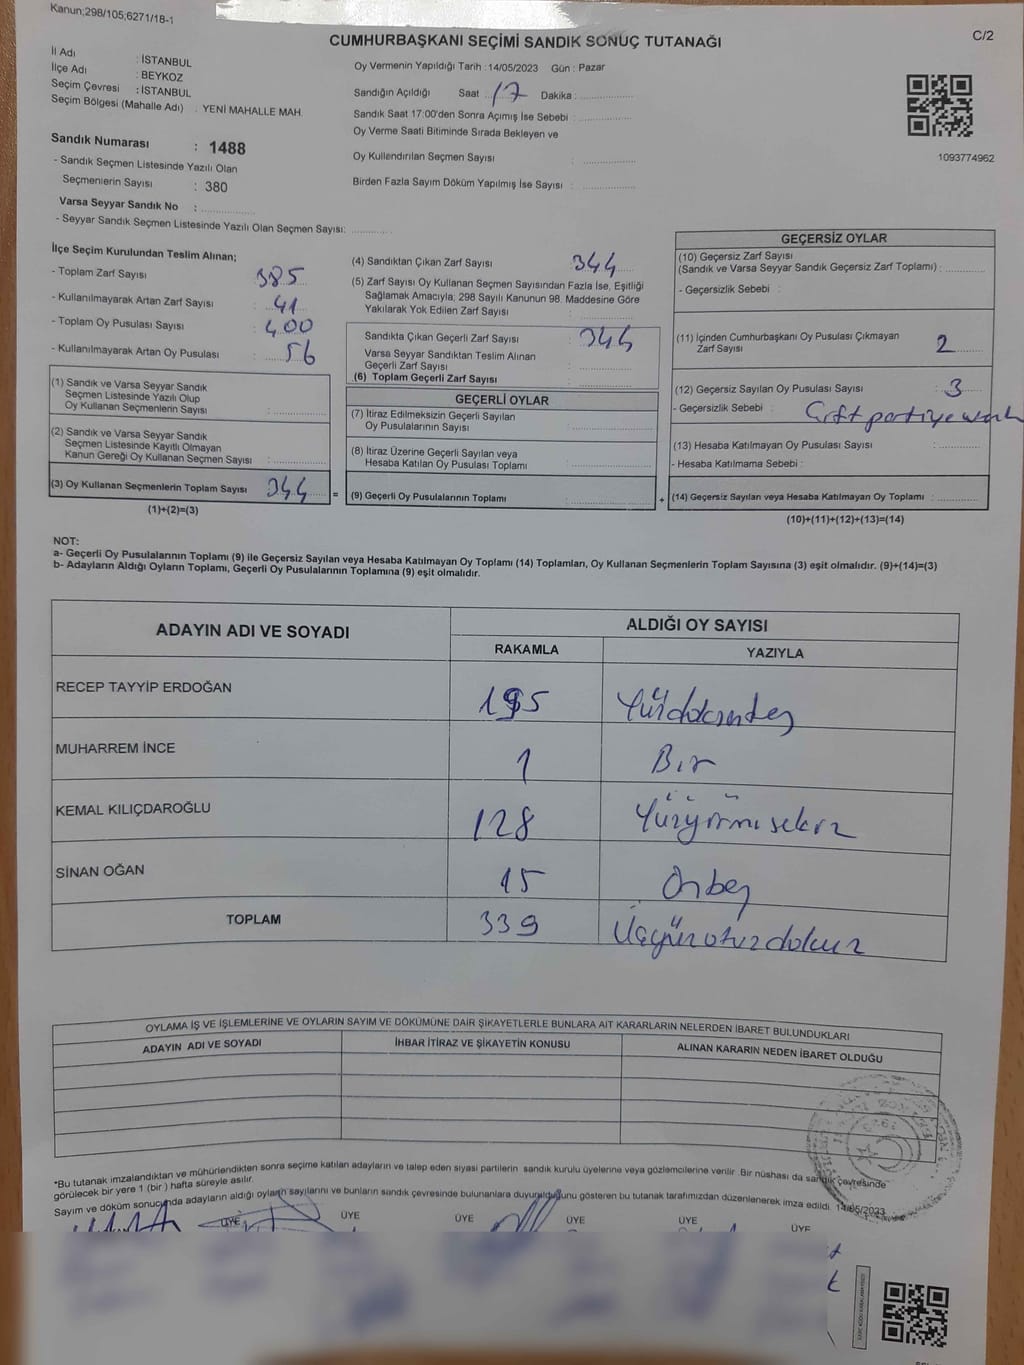 Kanun;298/105;6271/18-1
C/2
CUMHURBAŞKANI SEÇİMİ SANDIK SONUÇ TUTANAĞI
İl Adı : İSTANBUL
İlçe Adı : BEYKOZ
Seçim Çevresi : İSTANBUL
Seçim Bölgesi (Mahalle Adı) : YENİ MAHALLE MAH.
Sandık Numarası : 1488
- Sandık Seçmen Listesinde Yazılı Olan
Seçmenlerin Sayısı : 380
Varsa Seyyar Sandık No :
- Seyyar Sandık Seçmen Listesinde Yazılı Olan Seçmen Sayısı:
Oy Vermenin Yapıldığı Tarih : 14/05/2023 Gün : Pazar
Sandığın Açıldığı Saat : 17 Dakika :
Sandık Saat 17:00'den Sonra Açılmış İse Sebebi :
Oy Verme Saati Bitiminde Sırada Bekleyen ve
Oy Kullandırılan Seçmen Sayısı :
Birden Fazla Sayım Döküm Yapılmış İse Sayısı :
1093774962
İlçe Seçim Kurulundan Teslim Alınan;
- Toplam Zarf Sayısı : 385
- Kullanılmayarak Artan Zarf Sayısı : 41
- Toplam Oy Pusulası Sayısı : 400
- Kullanılmayarak Artan Oy Pusulası : 56
(1) Sandık ve Varsa Seyyar Sandık
Seçmen Listesinde Yazılı Olup
Oy Kullanan Seçmenlerin Sayısı :
(2) Sandık ve Varsa Seyyar Sandık
Seçmen Listesinde Kayıtlı Olmayan
Kanun Gereği Oy Kullanan Seçmen Sayısı :
(3) Oy Kullanan Seçmenlerin Toplam Sayısı 344 =
(1)+(2)=(3)
(4) Sandıktan Çıkan Zarf Sayısı : 344
(5) Zarf Sayısı Oy Kullanan Seçmen Sayısından Fazla İse, Eşitliği
Sağlamak Amacıyla; 298 Sayılı Kanunun 98. Maddesine Göre
Yakılarak Yok Edilen Zarf Sayısı :
Sandıkta Çıkan Geçerli Zarf Sayısı : 344
Varsa Seyyar Sandıktan Teslim Alınan
Geçerli Zarf Sayısı :
(6) Toplam Geçerli Zarf Sayısı :
GEÇERLİ OYLAR
(7) İtiraz Edilmeksizin Geçerli Sayılan
Oy Pusulalarının Sayısı :
(8) İtiraz Üzerine Geçerli Sayılan veya
Hesaba Katılan Oy Pusulası Toplamı :
(9) Geçerli Oy Pusulalarının Toplamı : +
GEÇERSİZ OYLAR
(10) Geçersiz Zarf Sayısı
(Sandık ve Varsa Seyyar Sandık Geçersiz Zarf Toplamı) :
- Geçersizlik Sebebi :
(11) İçinden Cumhurbaşkanı Oy Pusulası Çıkmayan
Zarf Sayısı : 2
(12) Geçersiz Sayılan Oy Pusulası Sayısı : 3
- Geçersizlik Sebebi : Çift partiye
(13) Hesaba Katılmayan Oy Pusulası Sayısı :
- Hesaba Katılmama Sebebi :
(14) Geçersiz Sayılan veya Hesaba Katılmayan Oy Toplamı :
(10)+(11)+(12)+(13)=(14)
NOT:
a- Geçerli Oy Pusulalarının Toplamı (9) ile Geçersiz Sayılan veya Hesaba Katılmayan Oy Toplamı (14) Toplamları, Oy Kullanan Seçmenlerin Toplam Sayısına (3) eşit olmalıdır. (9)+(14)=(3)
b- Adayların Aldığı Oyların Toplamı, Geçerli Oy Pusulalarının Toplamına (9) eşit olmalıdır.
ADAYIN ADI VE SOYADI ALDIĞI OY SAYISI
RAKAMLA YAZIYLA
RECEP TAYYİP ERDOĞAN 195 Yüzdoksanbeş
MUHARREM İNCE 1 Bir
KEMAL KILIÇDAROĞLU 128 Yüzyirmisekiz
SİNAN OĞAN 15 Onbeş
TOPLAM 339 Üçyüzotuzdokuz
OYLAMA İŞ VE İŞLEMLERİNE VE OYLARIN SAYIM VE DÖKÜMÜNE DAİR ŞİKAYETLERLE BUNLARA AİT KARARLARIN NELERDEN İBARET BULUNDUKLARI
ADAYIN ADI VE SOYADI İHBAR İTİRAZ VE ŞİKAYETİN KONUSU ALINAN KARARIN NEDEN İBARET OLDUĞU
*Bu tutanak imzalandıktan ve mühürlendikten sonra seçime katılan adayların ve talep eden siyasi partilerin sandık kurulu üyelerine veya gözlemcilerine verilir. Bir nüshası da sandık çevresinde
görülecek bir yere 1 (bir) hafta süreyle asılır.
Sayım ve döküm sonucunda adayların aldığı oyların sayılarını ve bunların sandık çevresinde bulunanlara duyurulduğunu gösteren bu tutanak tarafımızdan düzenlenerek imza edildi. 14/05/2023
ÜYE ÜYE ÜYE ÜYE ÜYE ÜYE